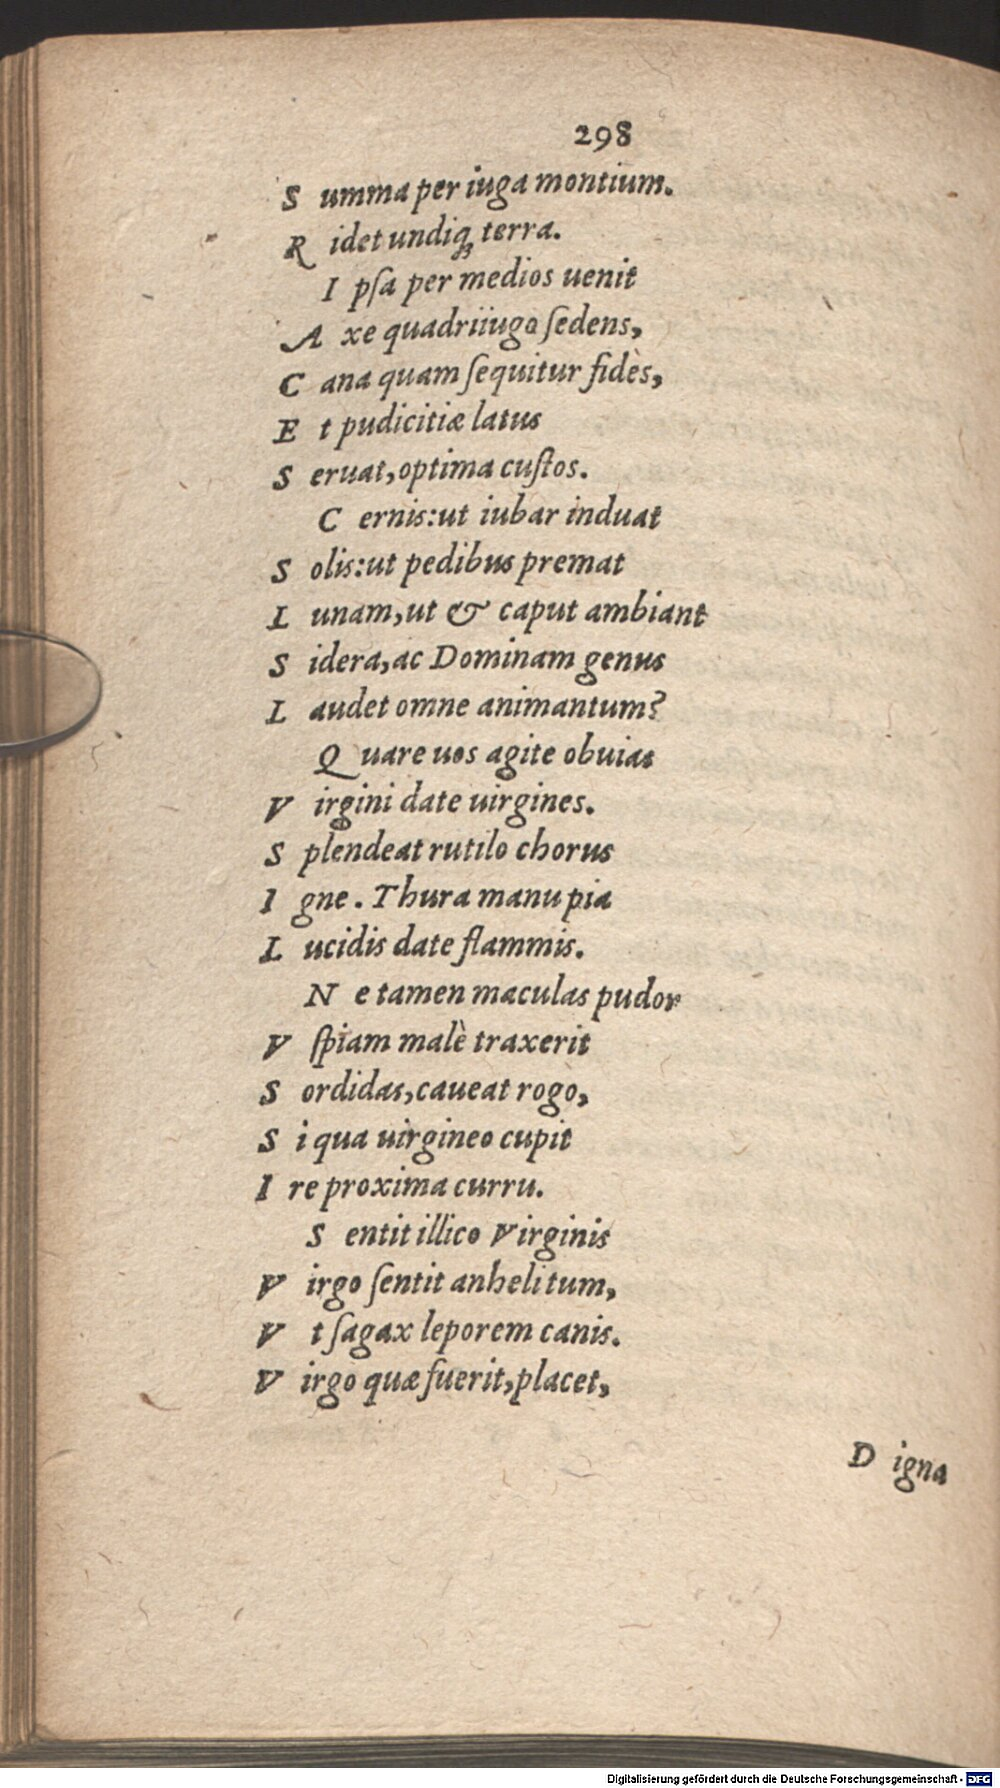 298
S umma per iuga montium.
R idet undiq; terra.
I pſa per medios uenit
A xe quadriiugo ſedens,
C ana quam ſequitur fidès,
E t pudicitiæ latus
S eruat, optima cuſtos.
C ernis: ut iubar induat
S olis: ut pedibus premat
L unam, ut & caput ambiant
S idera, ac Dominam genus
L audet omne animantum?
Q uare uos agite obuias
V irgini date uirgines.
S plendeat rutilo chorus
I gne. Thura manu pia
L ucidis date flammis.
N e tamen maculas pudor
V ſpiam malè traxerit
S ordidas, caueat rogo,
S i qua uirgineo cupit
I re proxima curru.
S entit illico Virginis
V irgo ſentit anhelitum,
V t ſagax leporem canis.
V irgo quæ fuerit, placet,
D igna
Digitalisierung gefördert durch die Deutsche Forschungsgemeinschaft - DFG